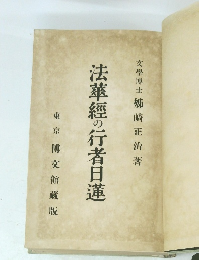 文學博士 姉崎正治著
法華經の行者日蓮
東京 博文館藏版